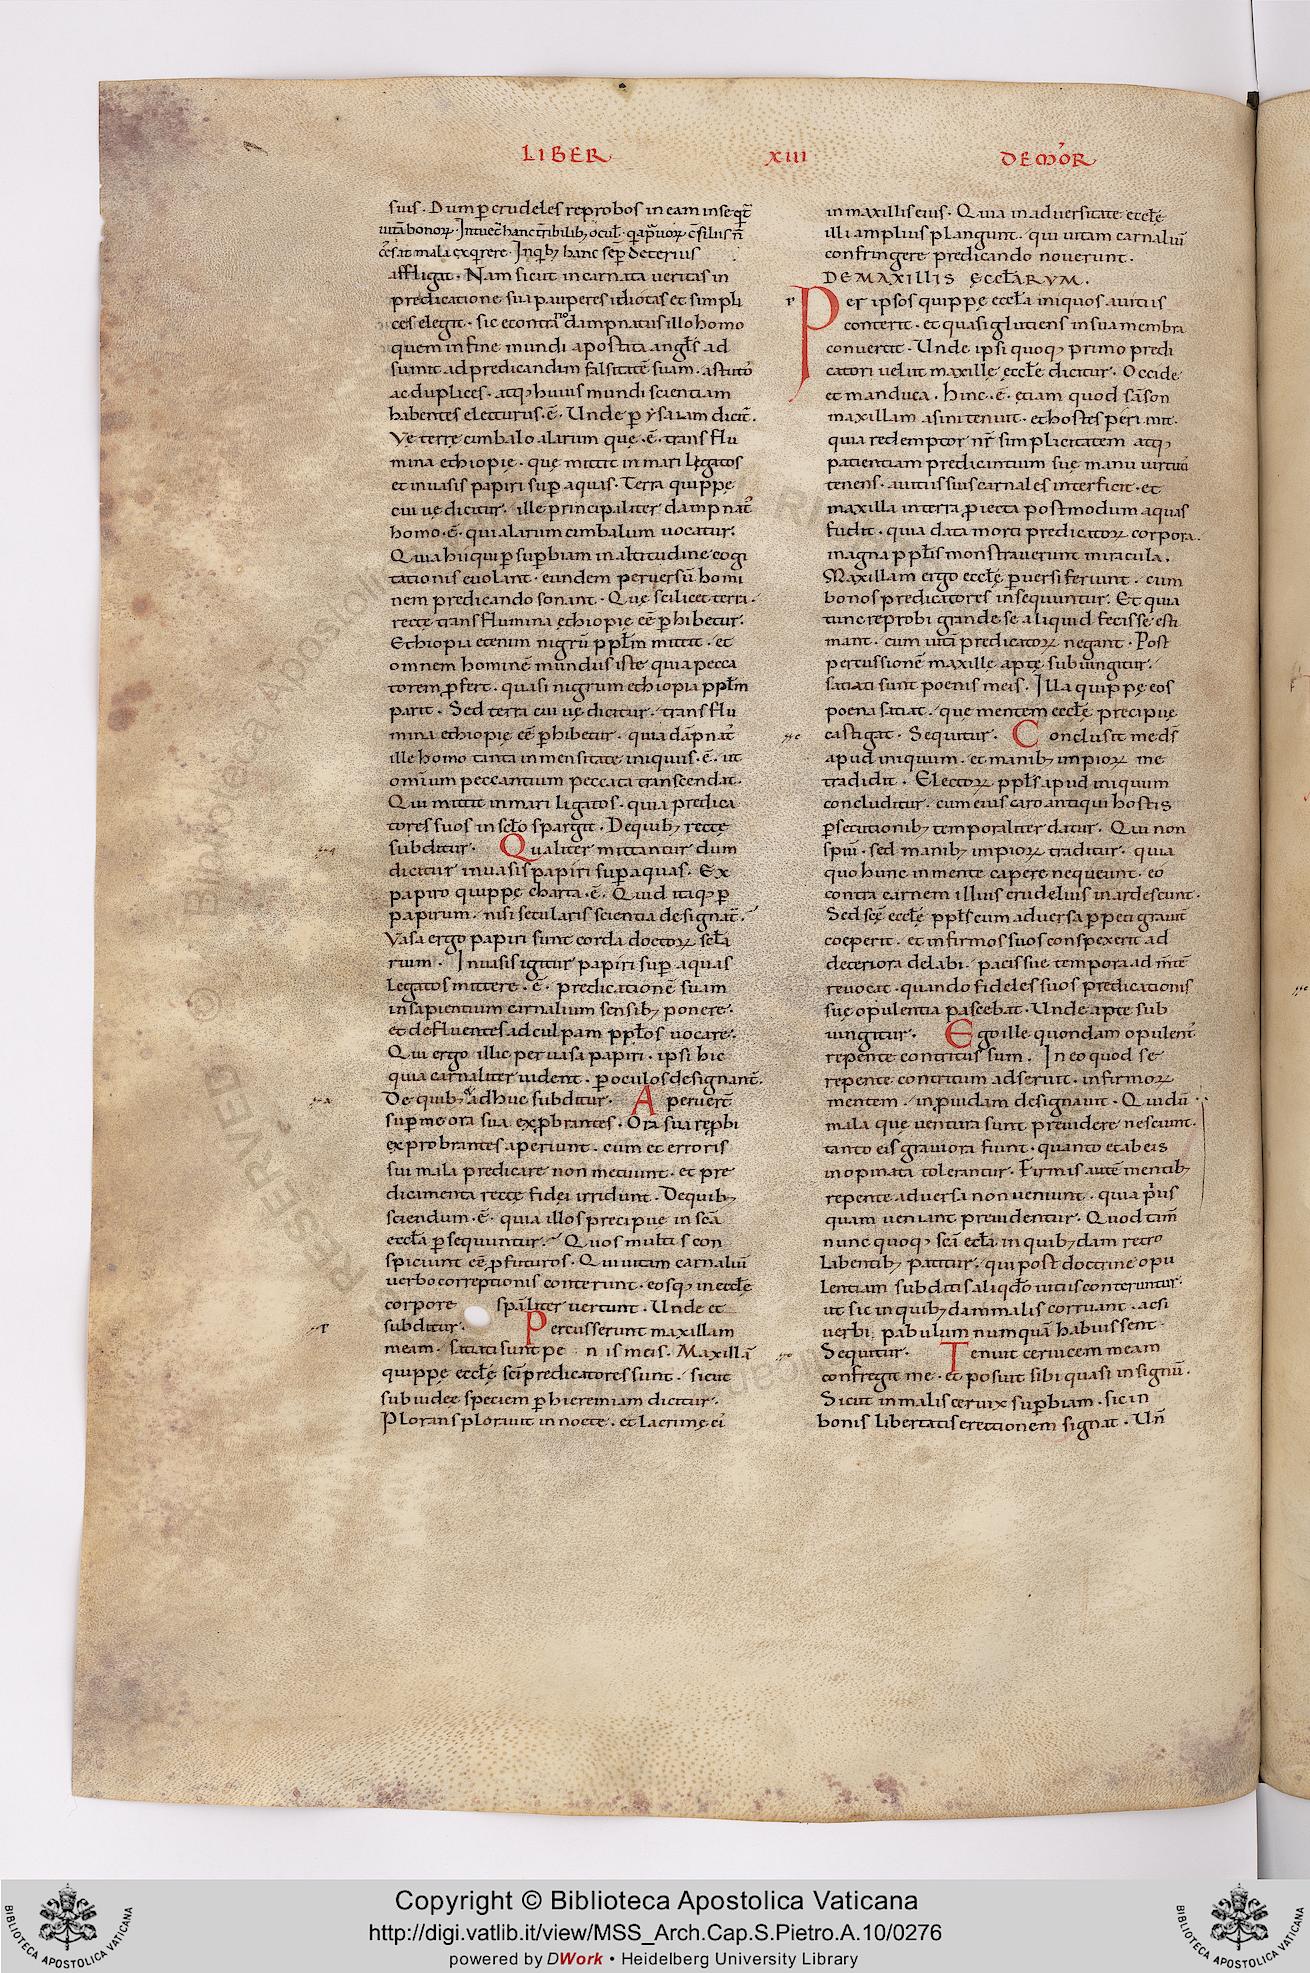 LIBER XIII DE MOR̄
suis. Dum p̄ crudeles reprobos in eam inseq̄t̄
uitā bonoꝝ. Intuet̄ hanc t̄ribilib; ocul̄. q̄
mala exq̄rere. Inq̄b; hanc sep̄ deterius
affligat. Nam sicut incarnata ueritas in
predicatione sua pauperes idiotas et simpli
ces elegit. sic econtrā dampnatus illo homo
quem in fine mundi apostata angl̄s ad
sumit ad predicandum falsitatē suam. astuto᷒
ac duplices. atq; huius mundi scientiam
habentes electurus .ē. Unde p̄ ysaiam dicit᷒.
Ve terrę cimbalo alarum quę .ē. trans flu
mina ethiopię. quę mittit in mari legatos
et in uasis papiri sup̄ aquas. Terra quippę
cui uę dicitur. ille principaliter dampnat᷒
homo .ē. qui alarum cimbalum uocatur.
Quia hii qui p̄ sup̄biam in altitudine cogi
tationis euolant. eundem peruersū homi
nem predicando sonant. Quę scilicet terra.
recte trans flumina ęthiopię eē p̄hibetur.
Ethiopia etenim nigrū ppl̄m mittit. et
omnem hominē mundus iste quia pecca
torem ꝓfert. quasi nigrum ethiopia ppl̄m
parit. Sed terra cui uę dicitur. trans flu
mina ethiopię eē p̄hibetur. quia dāpnat᷒
ille homo tanta inmensitate iniquus .ē. ut
omīum peccantium peccata transcendat.
Qui mittit in mari ligatos. quia predica
tores suos in scl̄o spargit. De quib; rectę
subditur. Qualiter mittantur dum
dicitur in uasis papiri sup̄ aquas. Ex
papiro quippe charta .ē. Quid itaq; p̄
papirum. nisi secularis scientia designat᷒.
Vasa ergo papiri sunt corda doctoꝝ scl̄a
rium. In uasis igitur papiri sup̄ aquas
legatos mittere .ē. predicationē suam
in sapientium carnalium sensib; ponere.
et defluentes ad culpam ppl̄os uocare.
Qui ergo illic per uasa papiri. ipsi hic
quia carnaliter uident. p̄ oculos designant᷒.
De quib; adhuc subditur. A peruert̄
sup̄ me ora sua exp̄brantes. Ora sua rep̄bi
exprobrantes aperiunt. cum et erroris
sui mala predicare non metuunt. et pre
dicamenta rectę fidei irridunt. De quib;
sciendum .ē. quia illos precipue in scā
eccl̄a p̄sequuntur. Quos multis con
spiciunt eē ꝓfuturos. Qui uitam carnaliū
uerbo correptionis conterunt. eosq; in eccl̄ę
corpore spāliter uertunt. Unde et
subditur. Percusserunt maxillam
meam. satiati sunt pe nis meis. Maxillā
quippę eccl̄ę scī predicatores sunt. sicut
sub iudęę speciem p̄ hieremiam dicitur.
Plorans plorauit in nocte. et lacrimę ei᷒
in maxillis eius. Quia in aduersitate eccl̄ę
illi amplius plangunt. qui uitam carnaliū
confringere predicando nouerunt.
DE MAXILLIS ECCL̄ARVM.
Per ipsos quippę eccl̄a iniquos a uitiis
conterit. et quasi glutiens in sua membra
conuertit. Unde ipsi quoq; primo predi
catori uelut maxillę eccl̄ę dicitur. Occide
et manduca. Hinc .ē. etiam quod sāson
maxillam asini tenuit. et hostes peri mit.
quia redemptor nr̄ simplicitatem atq;
patientiam predicantium suę manu uirtuti᷒
tenens. a uitiis suis carnales interficit. et
maxilla in terra ꝓiecta postmodum aquas
fudit. quia data morti predicatoꝝ corpora.
magna ppl̄is monstrauerunt miracula.
Maxillam ergo eccl̄ę p̄uersi feriunt. cum
bonos predicatores insequuntur. Et quia
tunc reprobi grande se aliquid fecisse esti
mant. cum uitā predicatoꝝ negant. Post
percussionē maxillę apte subiungitur.
Satiati sunt poenis meis. Illa quippę eos
poena satiat. que mentem eccl̄ę precipue
castigat. Sequitur. Conclusit me d̄s
apud iniquum. et manib; impioꝝ me
tradidit. Electoꝝ ppl̄s apud iniquum
concluditur. cum eius caro antiqui hostis
p̄secutionib; temporaliter datur. Qui non
spiū. sed manib; impioꝝ traditur. quia
quo hunc in mente capere nequeunt. eo
contra carnem illius crudelius inardescunt.
Sed scę eccl̄ę ppl̄s cum aduersa p̄peti grauit᷒
coeperit. et infirmos suos conspexerit ad
deteriora delabi. pacis suę tempora ad m̄tē
reuocat. quando fideles suos predicationis
suę opulentia pascebat. Unde apte sub
iungitur. Ego ille quondam opulent᷒
repente contritus sum. In eo quod se
repente contritum adseruit. infirmoꝝ
mentem inꝓuidam designauit. Qui dū
mala quę uentura sunt preuidere nesciunt.
tanto eis grauiora fiunt. quanto et ab eis
inopinata tolerantur. Firmis autē mentib;
repente aduersa non ueniunt. quia p̄us
quam ueniant preuidentur. Quod tam̄
nunc quoq; scā eccl̄a in quib;dam retro
labentib; patitur. qui post doctrinę opu
lentiam subditis aliqdō uitiis conteruntur.
ut sic in quib;dam malis corruant. acsi
uerbi pabulum numquā habuissent.
Sequitur. Tenuit ceruicem meam
confregit me. et posuit sibi quasi in signū.
Sicut in malis ceruix sup̄biam. sic in
bonis libertatis erectionem signat. Un̄
Copyright © Biblioteca Apostolica Vaticana
http://digi.vatlib.it/view/MSS_Arch.Cap.S.Pietro.A.10/0276
powered by DWork • Heidelberg University Library
BIBLIOTECA APOSTOLICA VATICANA
BIBLIOTECA APOSTOLICA VATICANA